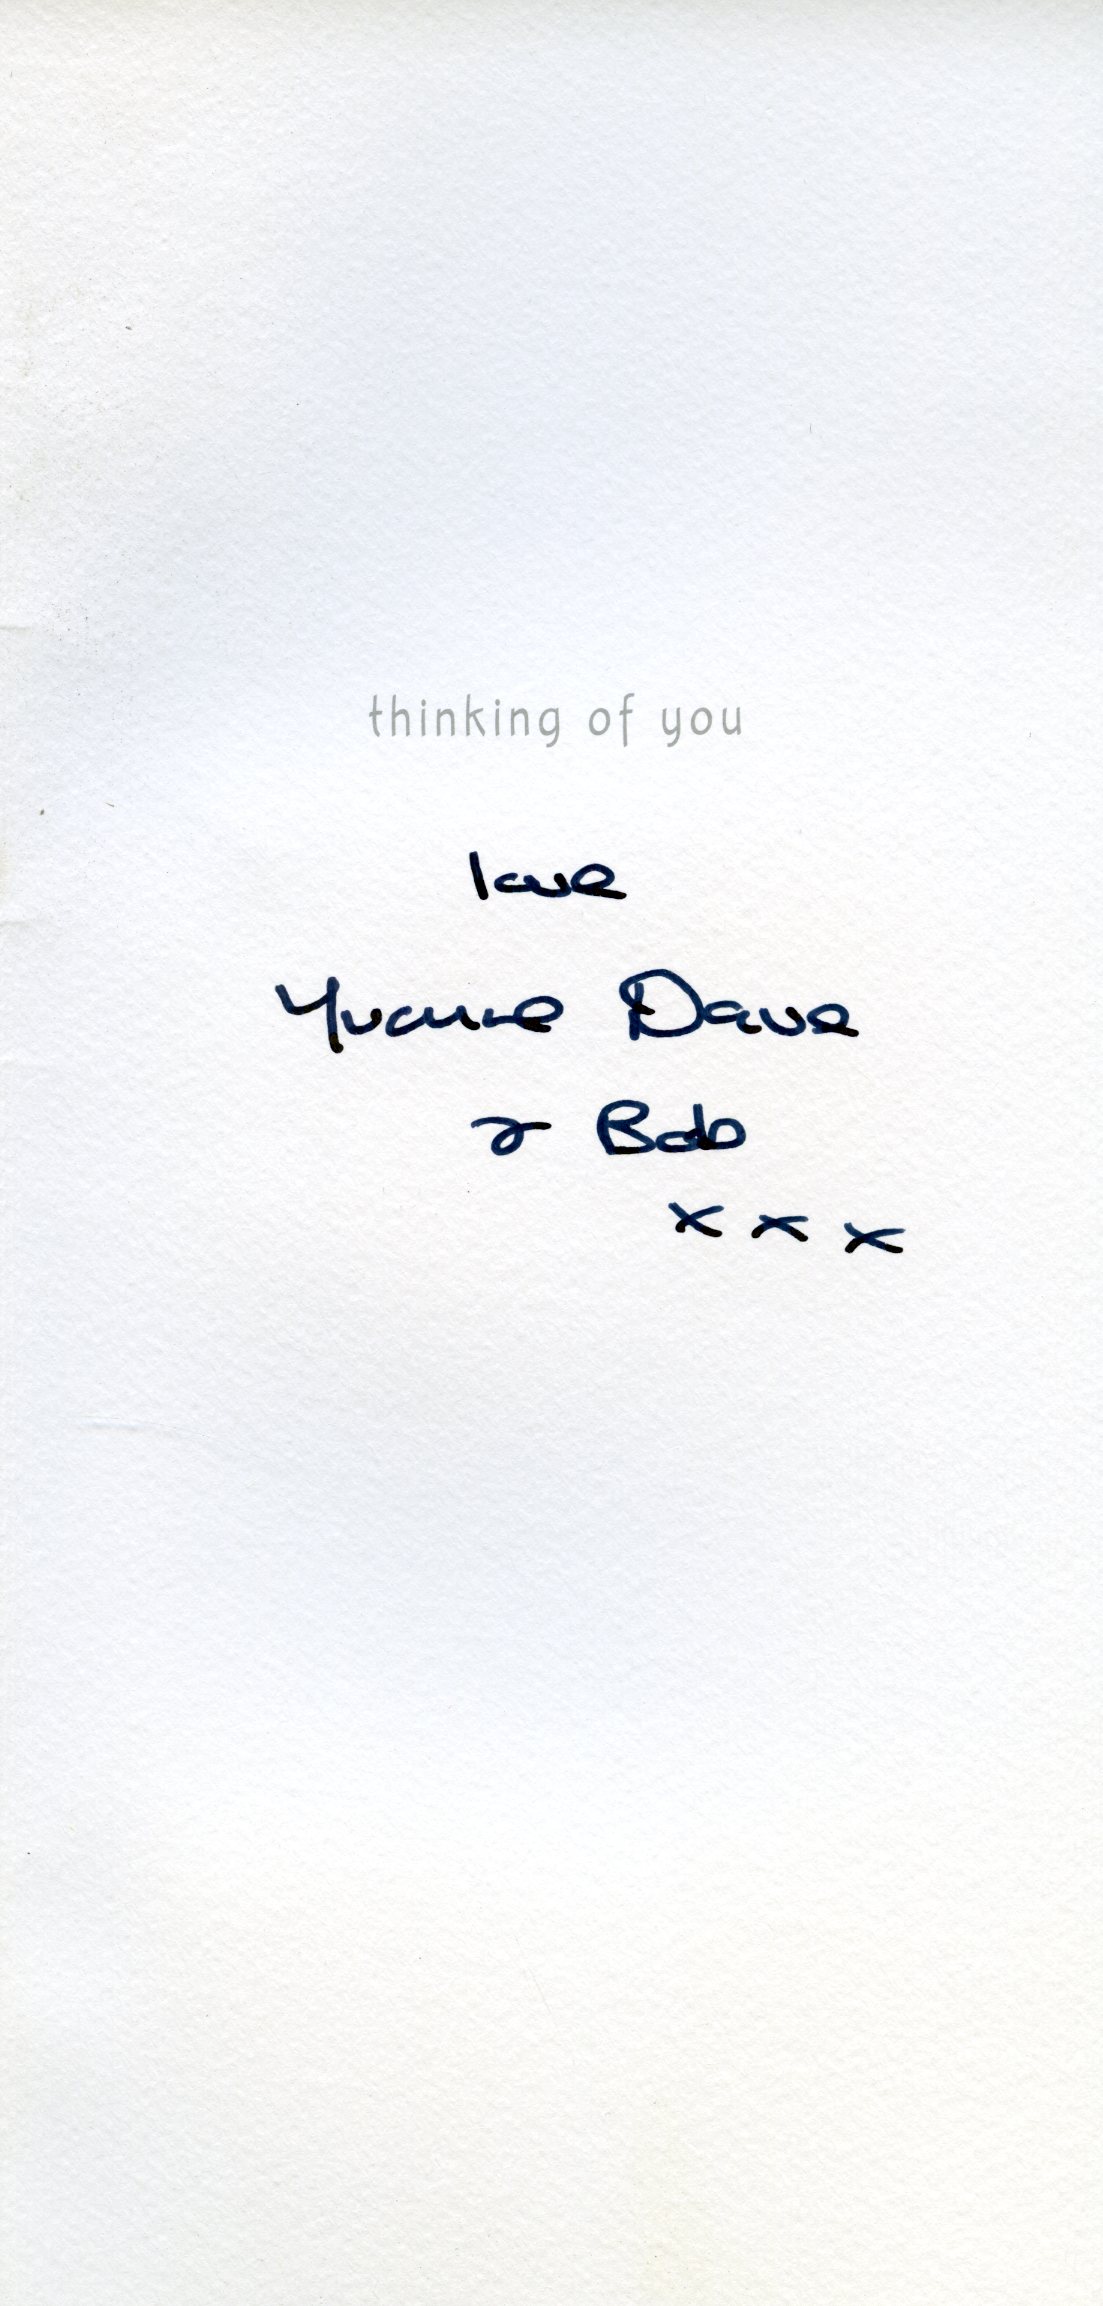 thinking of you
love
Yvonne Dave
& Bob
x x x